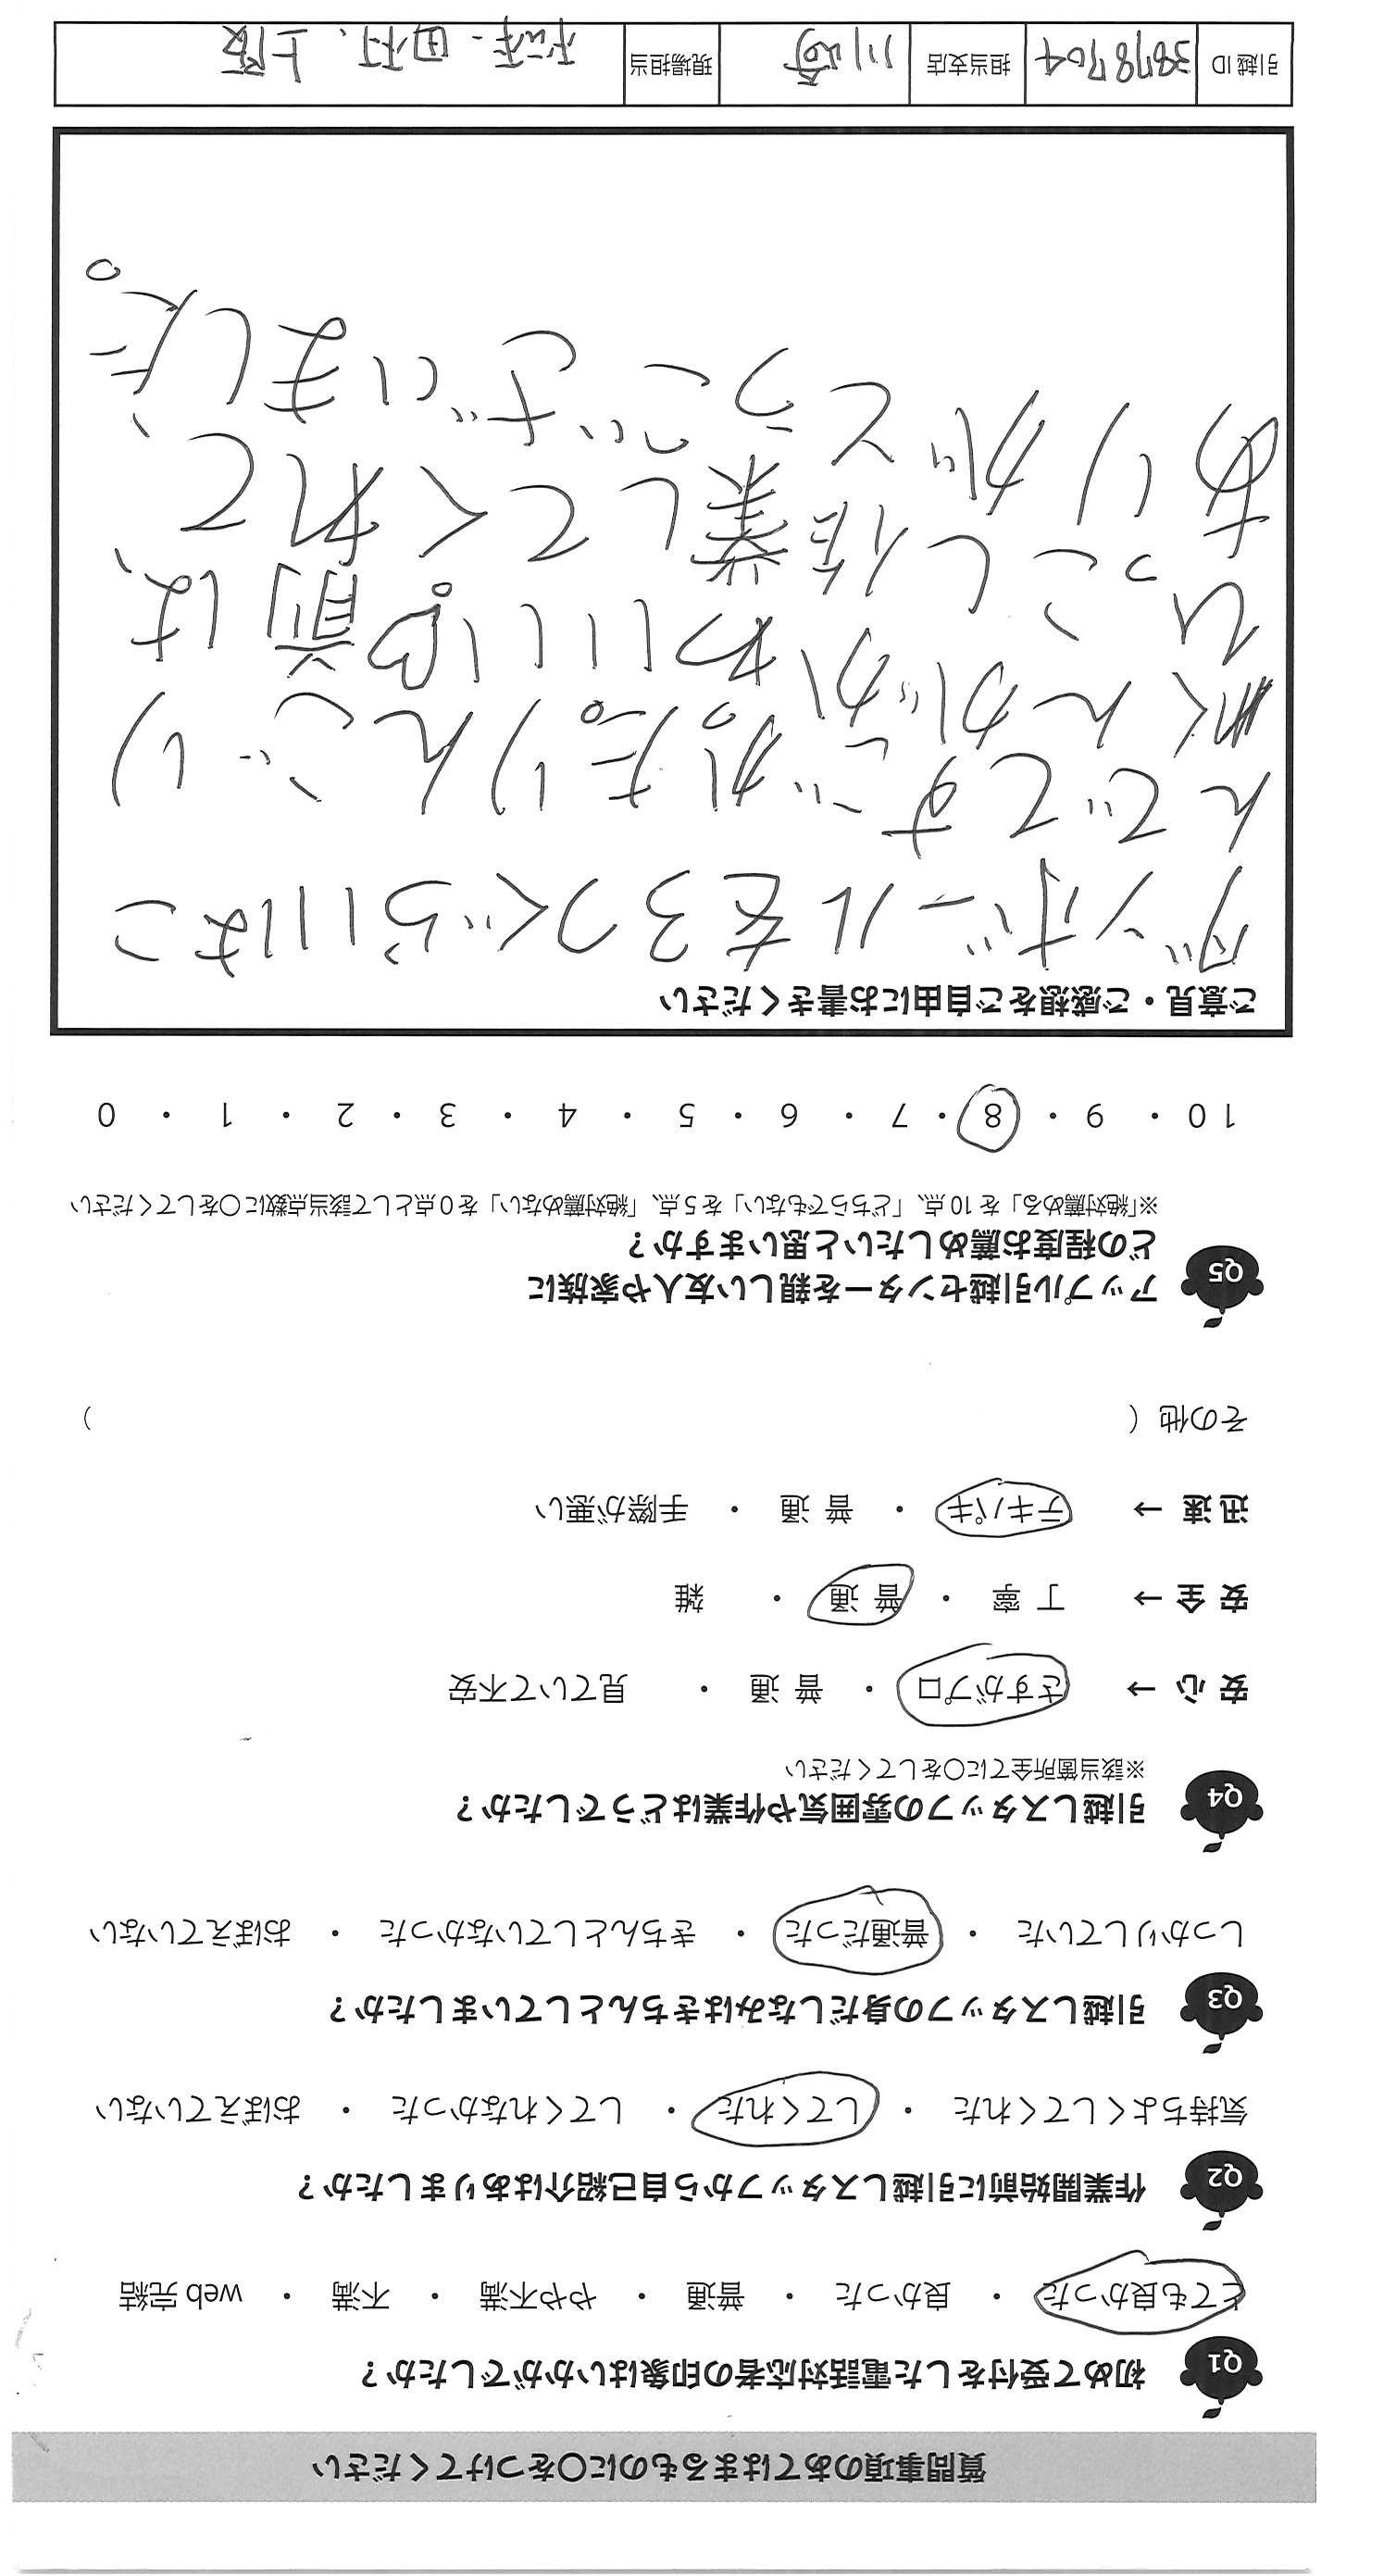 質問事項のあてはまるものに〇をつけてください
Q1 初めて受付をした電話対応者の印象はいかがでしたか？
とても良かった ・ 良かった ・ 普通 ・ やや不満 ・ 不満 ・ web 完結
Q2 作業開始前に引越しスタッフから自己紹介はありましたか？
気持ちよくしてくれた ・ してくれた ・ してくれなかった ・ おぼえていない
Q3 引越しスタッフの身だしなみはきちんとしていましたか？
しっかりしていた ・ 普通だった ・ きちんとしていなかった ・ おぼえていない
Q4 引越しスタッフの雰囲気や作業はどうでしたか？
※該当箇所全てに〇をしてください
安心 → さすがプロ ・ 普通 ・ 見ていて不安
安全 → 丁寧 ・ 普通 ・ 雑
迅速 → テキパキ ・ 普通 ・ 手際が悪い
その他（ ）
Q5 アップル引越センターを親しい友人や家族に
どの程度お薦めしたいと思いますか？
※「絶対薦める」を 10 点、「どちらでもない」を 5 点、「絶対薦めない」を 0 点として該当点数に〇をしてください
10 ・ 9 ・ 8 ・ 7 ・ 6 ・ 5 ・ 4 ・ 3 ・ 2 ・ 1 ・ 0
ご意見・ご感想をご自由にお書きください
ダンボールを3つぐらいはこ
んでてすごかった。りんごり
くんがかわいい 前は、
ひっこし作業してくれて、
ありがとうございました。
引越 ID 3878704 担当支店 川崎 現場担当 松本・田村、上阪